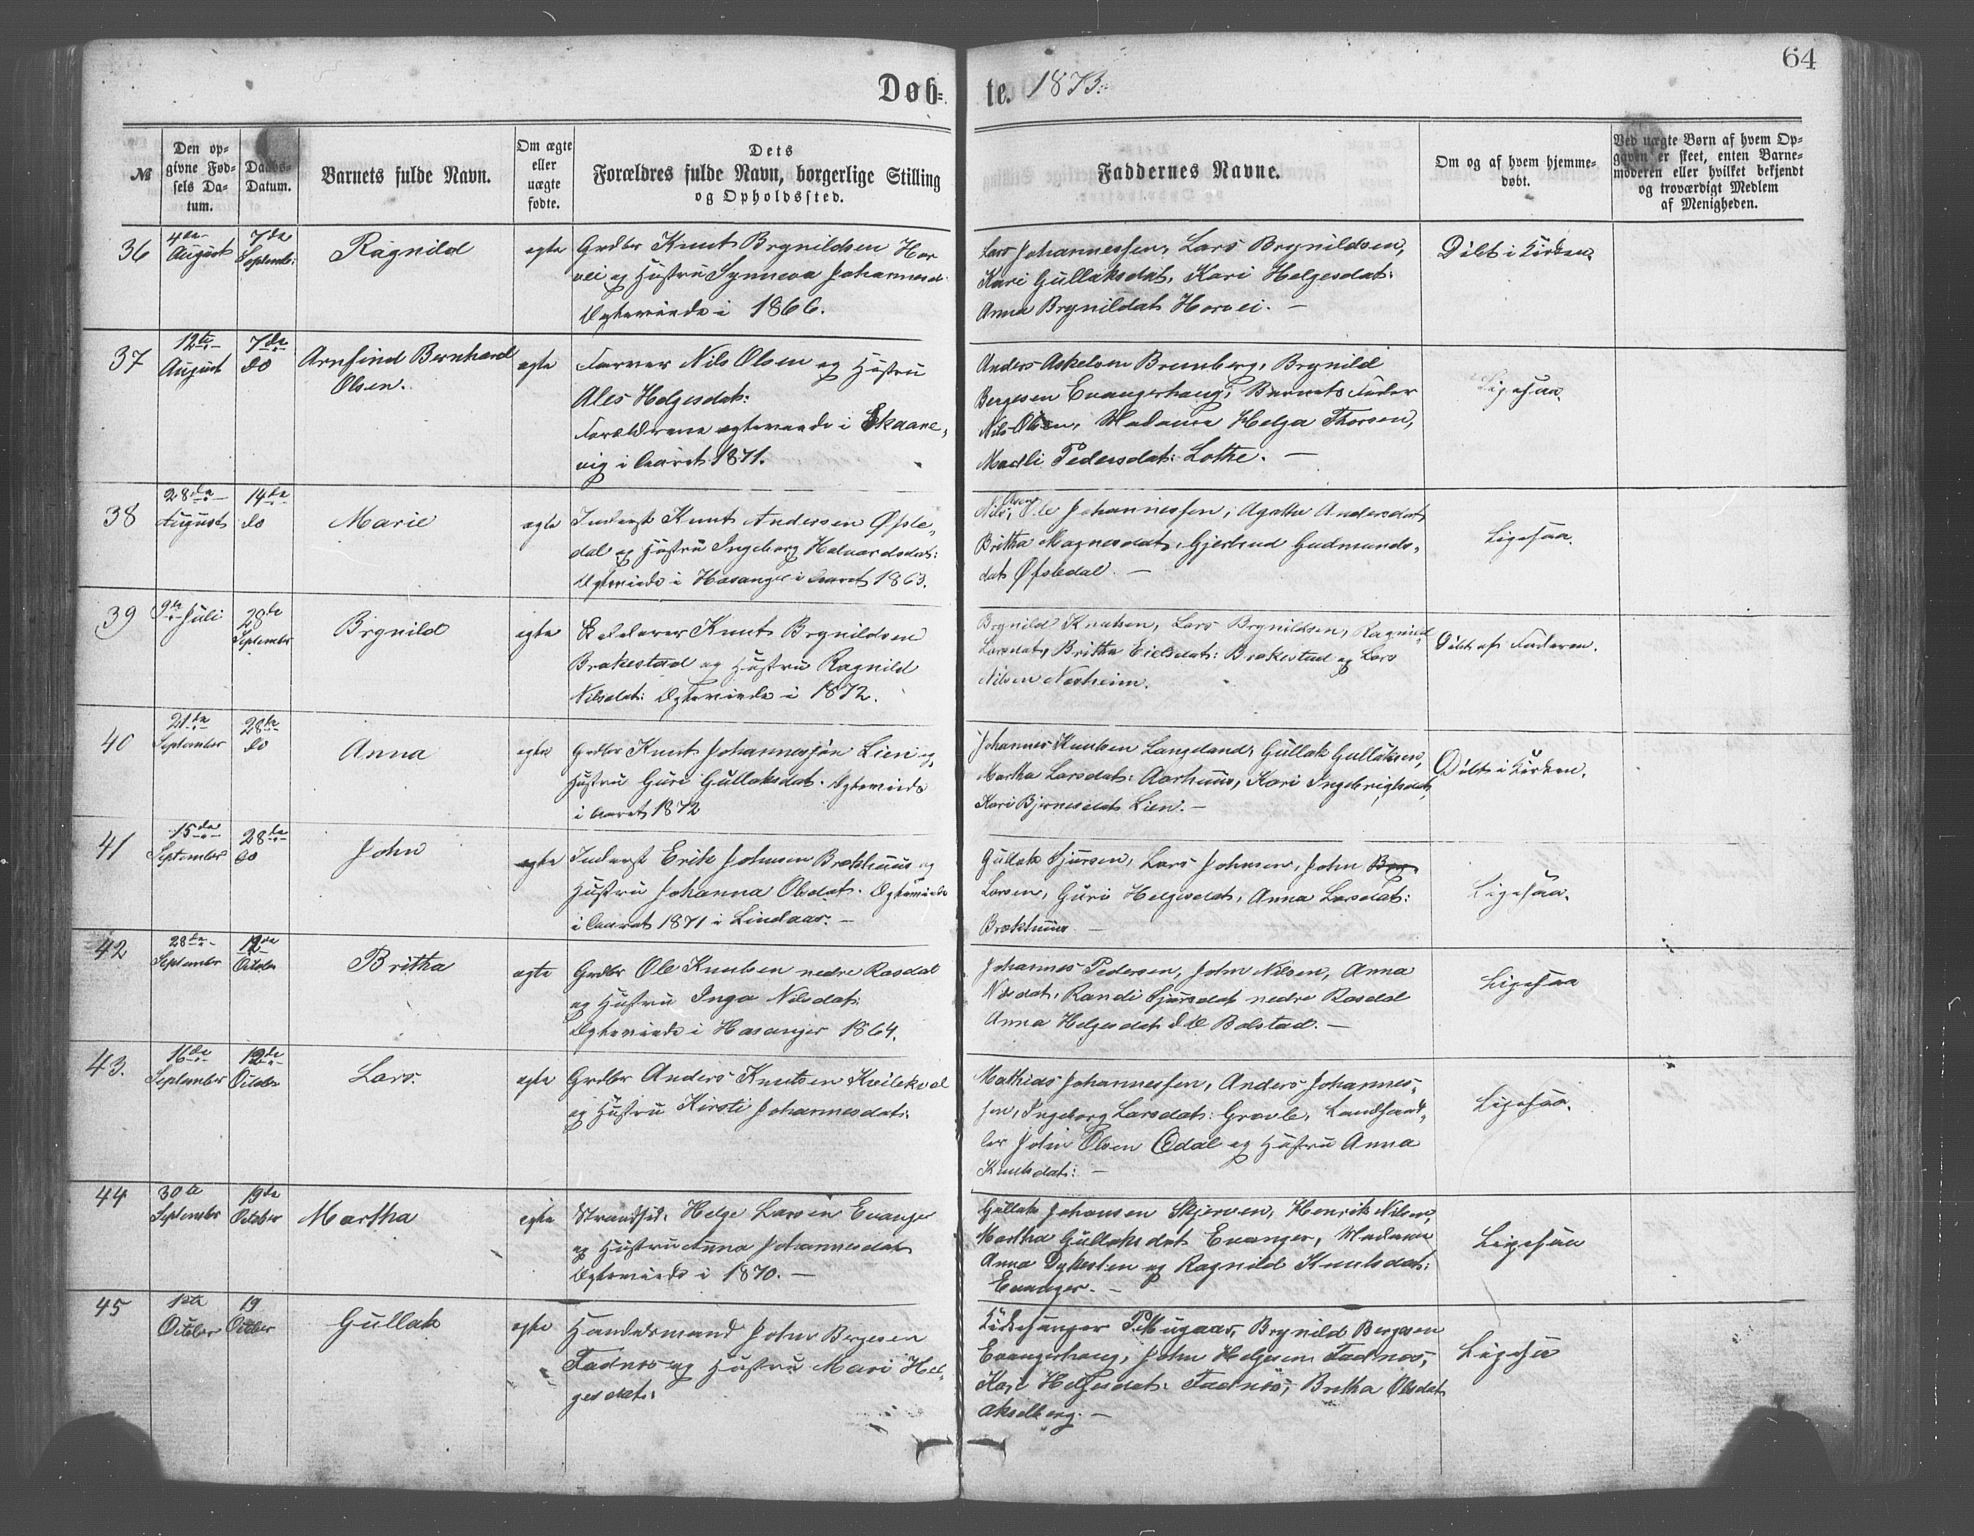 64
Døb-
te. 1873.
№
Den op-
givne Fød-
sels Da-
tum.
Daabs-
Datum.
Barnets fulde Navn.
Om ægte
eller
uægte
fødte.
Dets
Forældres fulde Navn, borgerlige Stilling
og Opholdssted.
Faddernes Navne.
Om og af hvem hjemme-
døbt.
Ved uægte Børn af hvem Op-
gaven er skeet, enten Barne-
moderen eller hvilket bekjendt
og troværdigt Medlem
af Menigheden.
36
4de
August
7de
Septembr
Ragnild
egte
Grdbr Knut Brynildsen Hor
vei og Hustru Synneva Johannesd.
Egteviede i 1866.
Lars Johannessen, Lars Brynildsen,
Kari Gullaksdat, Kari Helgesdat:
Anna Brynildsdat Horvei. —
Døbt i Kirken.
37
12te
August
7de
do
Arnfind Bernhard
Olsen.
egte
Farver Nils Olsen og Hustru
Ales Helgesdat:
Forældrene egteviede i Skaane-
vig i Aaret 1871.
Anders Askelsen Brunborg, Brynild
Bergesen Evangerhaug, Barnets Fader
Nils Olsen, Madame Helga Thorsen,
Madli Pedersdat: Lothe. —
Ligesaa.
38
28de
August
14de
do
Marie
egte
Inderst Knut Andersen Øfste-
dal og Hustru Ingeborg Halvardsdat:
Egteviede i Hosanger i Aaret 1863.
Nils, Ole Johannessen, Agatha Andersdat,
Britha Magnesdat, Gjertrud Gudmunds-
dat Øfstedal. —
Ligesaa.
39
9de Juli
28de
September
Brynild
egte
Knut Brynildsen
Brakestad og Hustru Ragnild
Nilsdat: Egteviede i 1872.
Brynild Knutsen, Lars Brynildsen, Ragnild
Larsdat, Britha Eielsdat: Brakestad og Lars
Nilsen Nesheim.
Døbt af Faderen.
40
21de
September
28de
do
Anna
egte
Grdbr Knut Johannessøn Lien og
Hustru Guri Gullaksdat. Egteviede
i Aaret 1872
Johannes Knutsen Langeland, Gullak Gullaksen,
Martha Larsdat: Aarhuus, Kari Ingebrigtsdat,
Kari Bjørnesdat Lien. —
Døbt i Kirken.
41
15de
September
28de
do
John
egte
Inderst Erik Johnsen Brækhuus og
Hustru Johanna Olsdat. Egteviede
i Aaret 1871 i Lindaas. —
Gullak Sjursen, Lars Johnsen, John
Larsen, Guri Helgesdat, Anna Larsdat:
Brækhuus —
Ligesaa.
42
28de
September
12de
October
Britha
egte
Grdbr Ole Knutsen nedre Rasdal
og Hustru Inga Nilsdat:
Egteviede i Hosanger 1864.
Johannes Pedersen, John Nilsen, Anna
Nilsdat, Randi Sjursdat nedre Rasdal
Anna Helgesdat Bolstad. —
Ligesaa
43.
16de
September
12de
October
Lars.
egte
Grdbr Anders Knutsen Kvilekval
og Hustru Kirsti Johannesdat:
Mathias Johannessen, Anders Johannes-
sen, Ingeborg Larsdat: Gravle, Landhand-
ler John Olsen Ædal og Hustru Anna
Knutsdat: —
Ligesaa.
44
30te
September
19de
October
Martha
egte
Strandsid. Helge Larsen Evanger
og Hustru Anna Johannesdat
Egteviede i 1870. —
Gullak Johansen Skjerven, Henrik Nilsen,
Martha Gullaksdat Evanger, Madame
Anna Dykesten og Ragnild Knutsdat:
Evanger. —
Ligesaa
45
1ste
October
19
October
Gullak
egte
Handelsmand John Bergesen
Fadnes og Hustru Mari Hel-
gesdat:
Kirkesanger P. Mugaas, Brynild Bergesen
Evangerhaug, John Helgesen Fadnes,
Kari Helgesdat: Fadnes, Britha Olsdat
Akselberg. —
Ligesaa